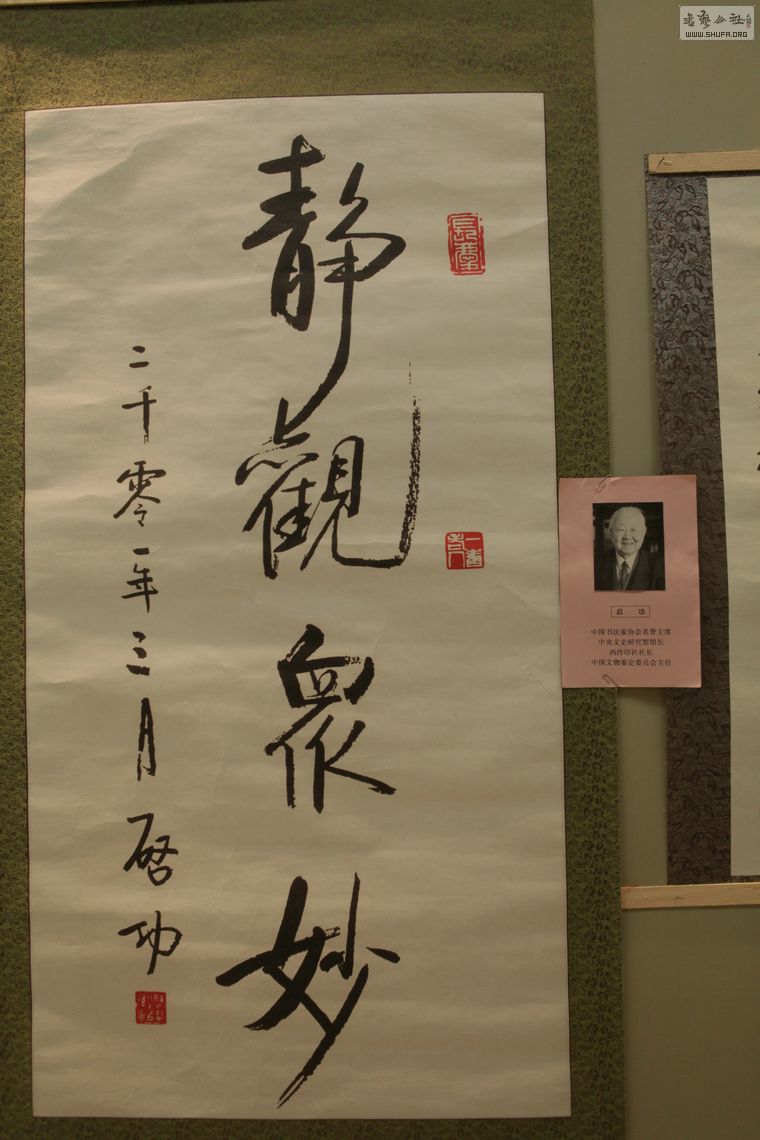 靜觀衆妙
二千零一年三月 啓功
启 功
中国书法家协会名誉主席
中央文史研究馆馆长
西泠印社社长
中国文物鉴定委员会主任
書藝公社
WWW.SHUFA.ORG